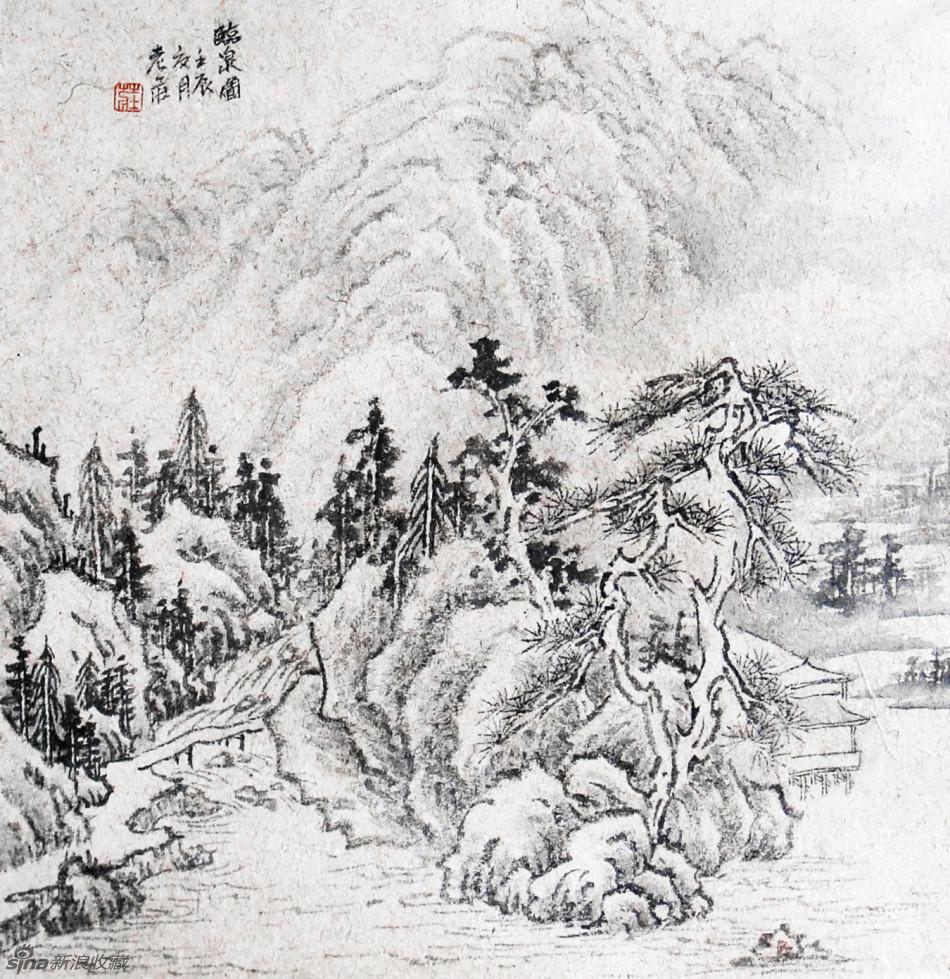 臨泉圖
壬辰
夏月
老庄
sina新浪收藏